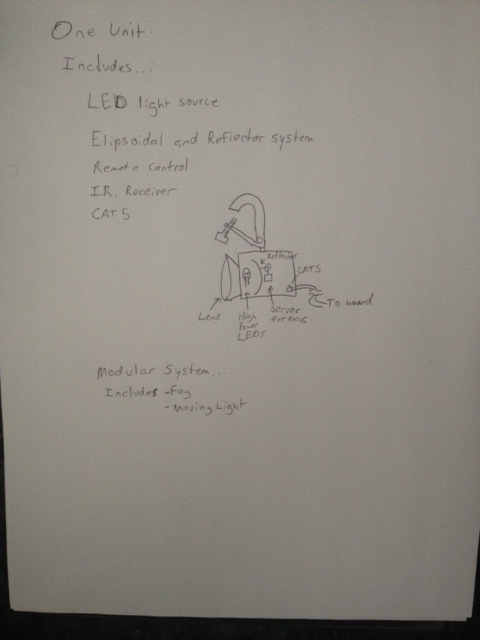 One Unit:
Includes...:
LED light source
Elipsoidal and Reflector system
Remote Control
I.R. Receiver
CAT 5
Reflector
CAT5
To board
Lens
High Power LEDs
Server for focus
Modular System...
Includes -Fog
-Moving Light